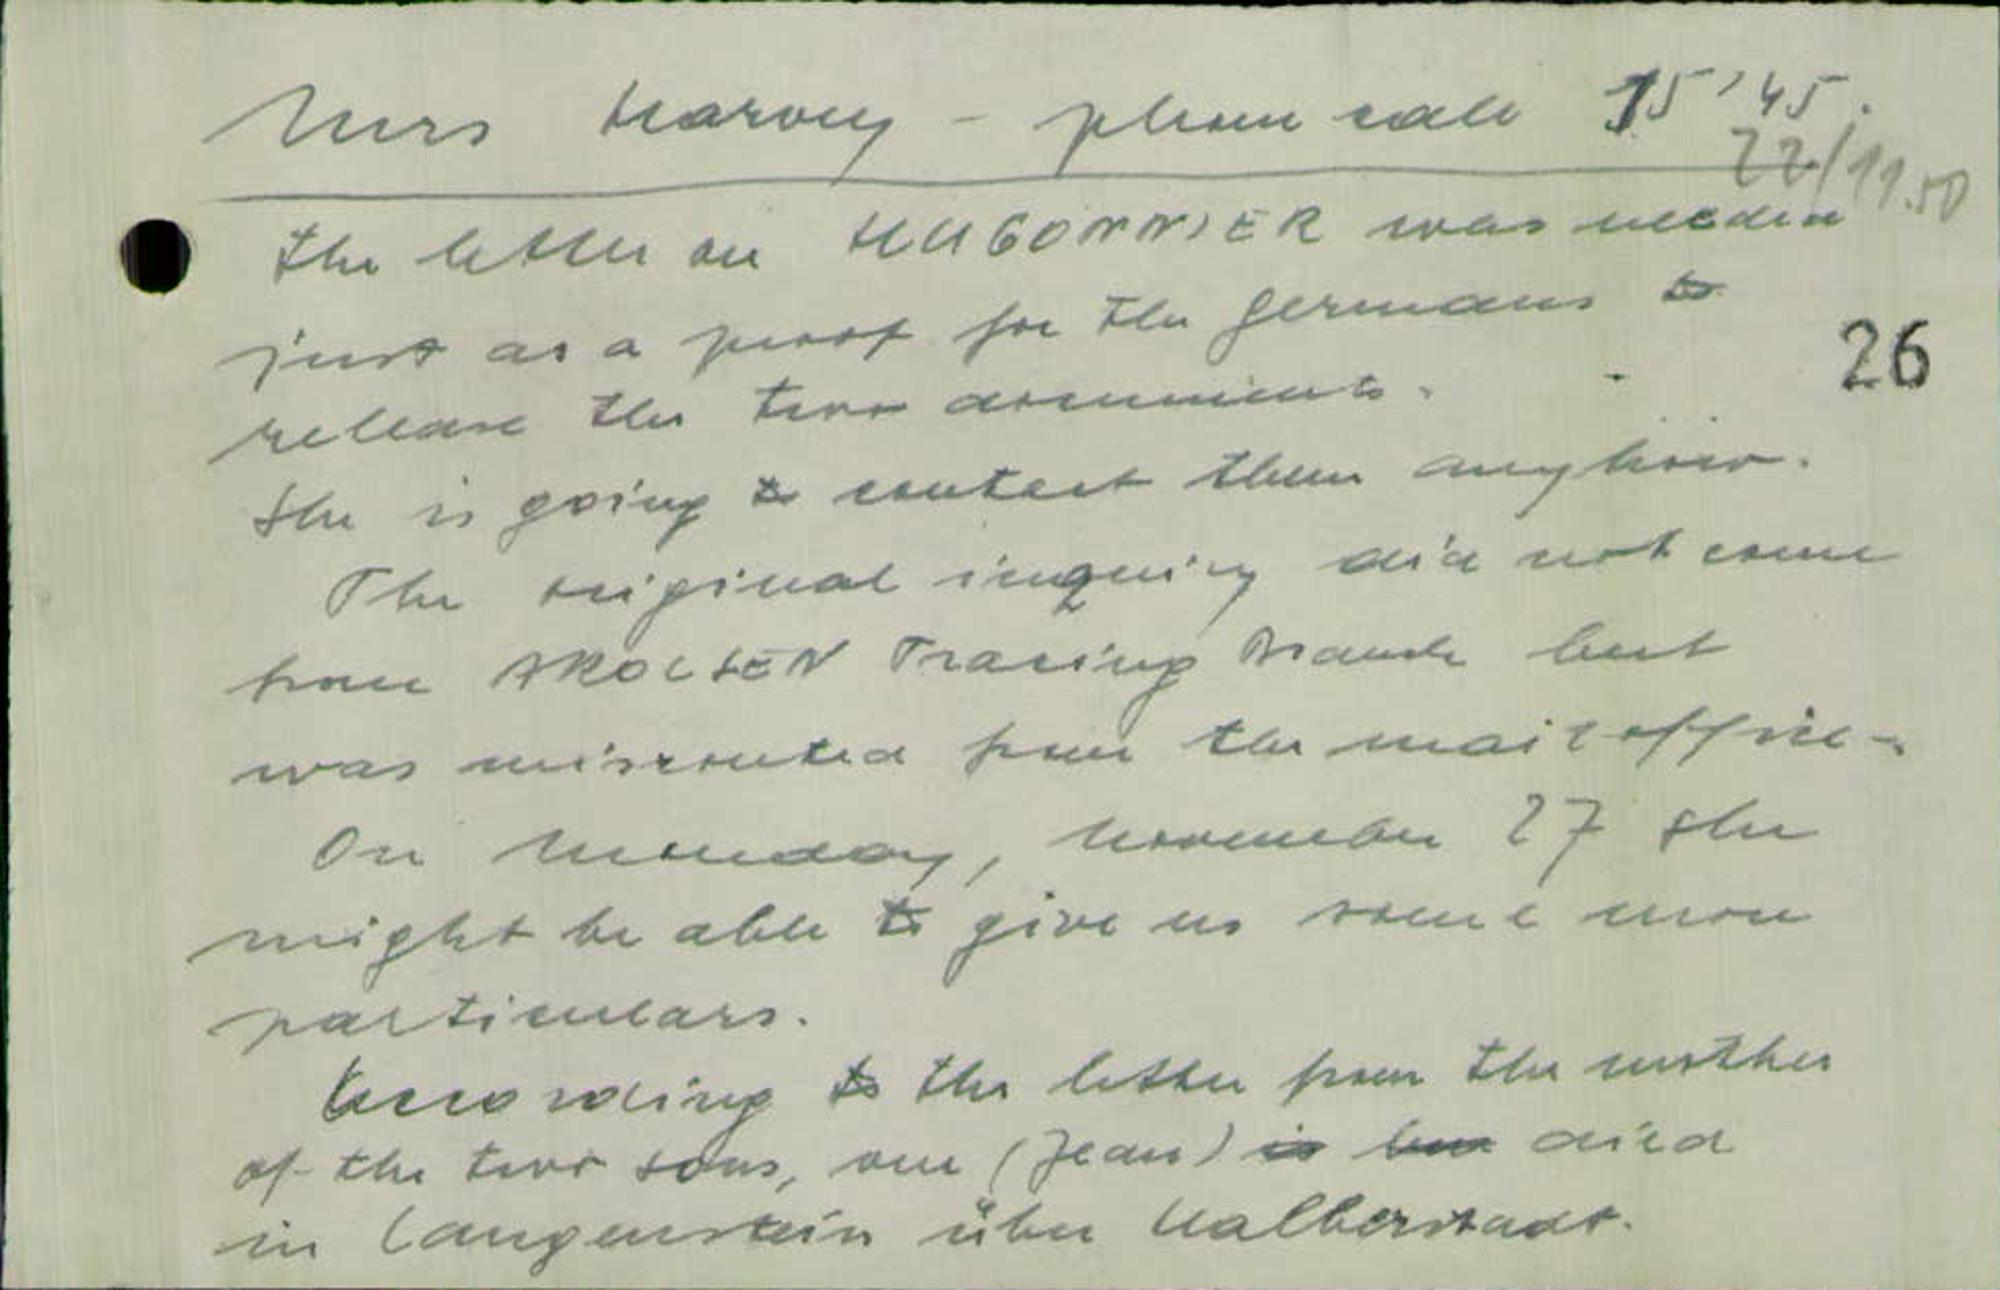 Mrs Harvey - phone call 15'45.
22/11.50
The letter on HUGONNIER was needed
just as a proof for the Germans to
26
release the two documents.
She is going to contact them anyhow.
The original inquiry did not come
from AROLSEN Tracing Branch but
was misrouted from the mail office.
On Monday, November 27 she
might be able to give us some more
particulars.
According to the letter from the mother
of the two sons, one (Jean) is died
in Langenstein über Halberstadt.